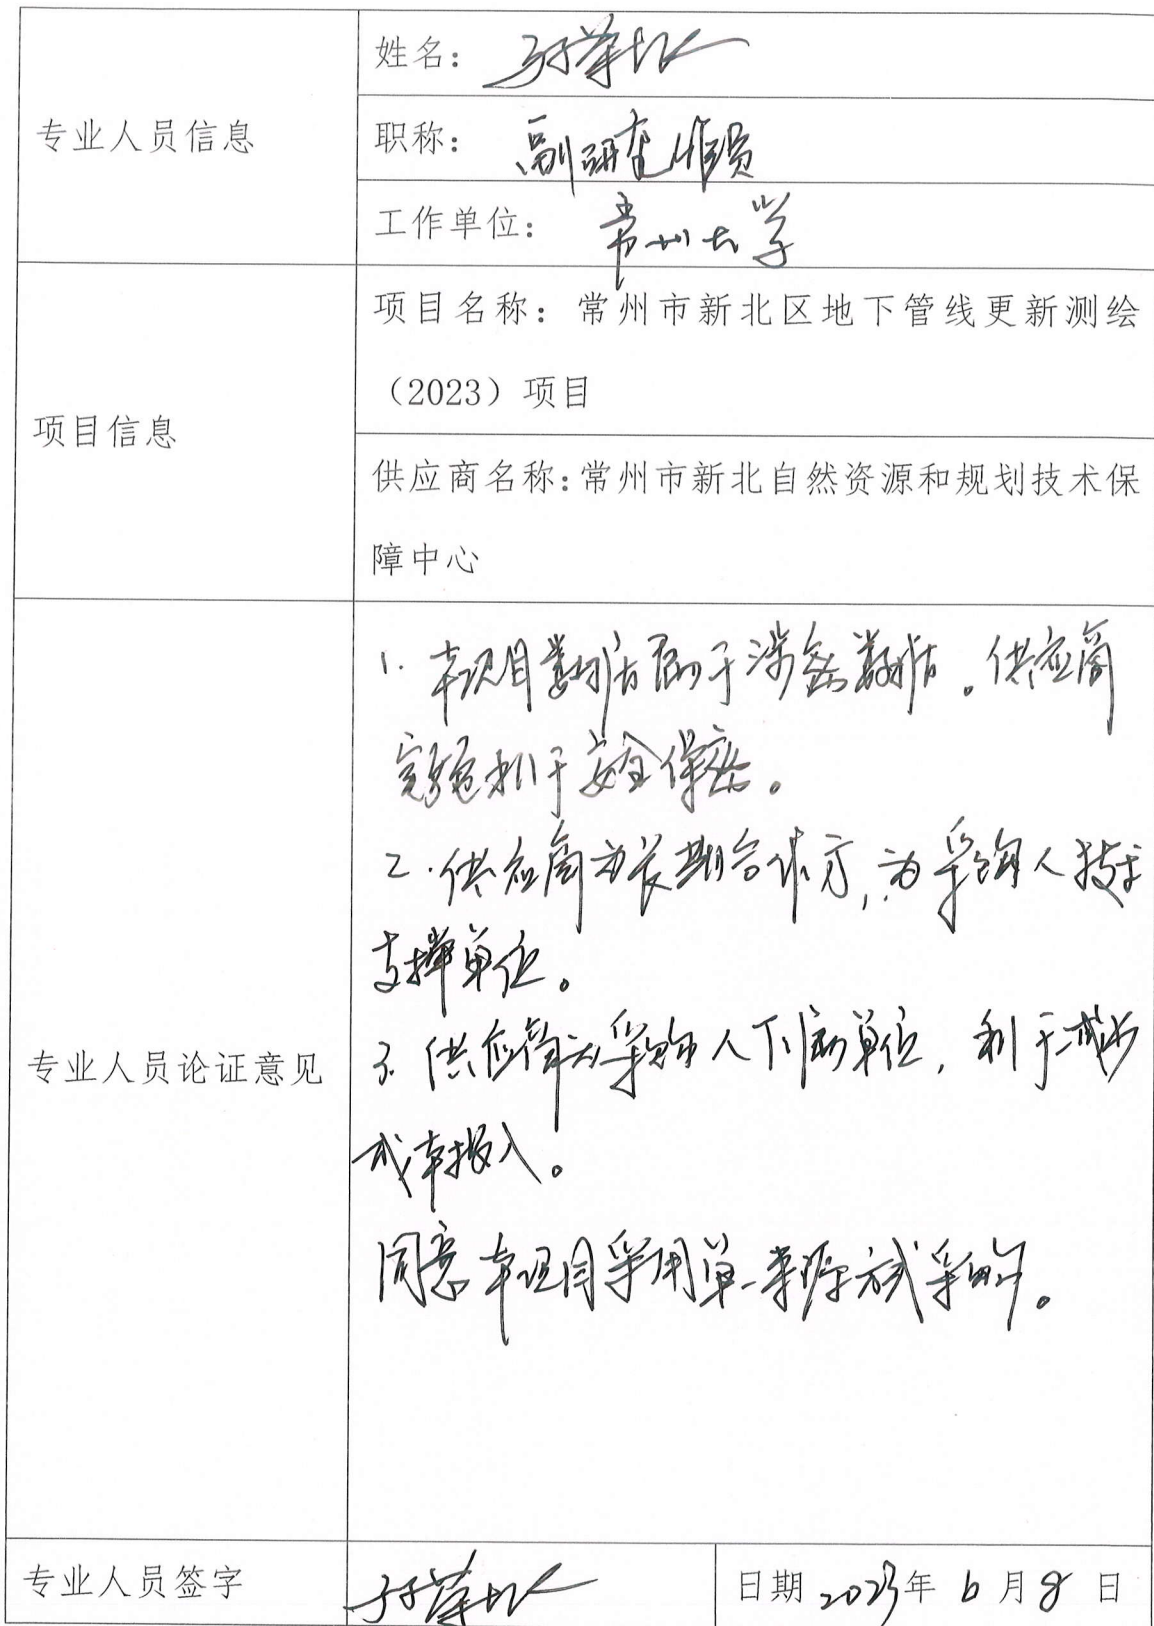 专业人员信息
姓名：
职称：副研究馆员
工作单位：常州大学
项目信息
项目名称：常州市新北区地下管线更新测绘
（2023）项目
供应商名称：常州市新北自然资源和规划技术保
障中心
专业人员论证意见
1. 本项目数据属于涉密数据。供应商
利于安全保密。
2. 供应商为长期合作方，为采购人技术
支撑单位。
3. 供应商为采购人下属单位，利于减少
成本投入。
同意本项目采用单一来源方式采购。
专业人员签字
日期 2023年 6 月 8 日